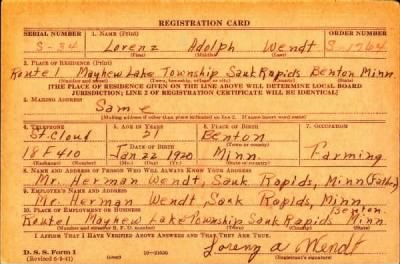 REGISTRATION CARD
SERIAL NUMBER 1. NAME (Print) ORDER NUMBER
S-34 Lorenz Adolph Wendt S-1764
(First) (Middle) (Last)
2. PLACE OF RESIDENCE (Print)
Route 1 Mayhew Lake Township Sauk Rapids Benton Minn.
[THE PLACE OF RESIDENCE GIVEN ON THE LINE ABOVE WILL DETERMINE LOCAL BOARD
JURISDICTION; LINE 2 OF REGISTRATION CERTIFICATE WILL BE IDENTICAL]
3. MAILING ADDRESS
Same
[Mailing address if other than place indicated on line 2. If same insert word same]
4. TELEPHONE 5. AGE IN YEARS 6. PLACE OF BIRTH 7. OCCUPATION
St. Cloud 21 Benton
DATE OF BIRTH
18F410 Jan 22 1920 Minn. Farming
(Exchange) (Number) (Mo.) (Day) (Yr.)
8. NAME AND ADDRESS OF PERSON WHO WILL ALWAYS KNOW YOUR ADDRESS
Mr. Herman Wendt, Sauk Rapids, Minn (Father)
9. EMPLOYER'S NAME AND ADDRESS
Mr. Herman Wendt, Sauk Rapids, Minn.
10. PLACE OF EMPLOYMENT OR BUSINESS Benton
Route 1 Mayhew Lake Township Sauk Rapids Minn
I AFFIRM THAT I HAVE VERIFIED ABOVE ANSWERS AND THAT THEY ARE TRUE.
D. S. S. Form 1
(Revised 6-9-41) Lorenz A Wendt